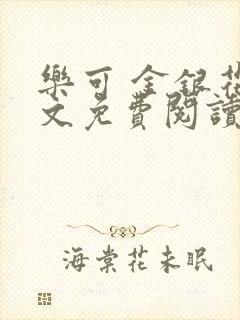 樂可 金銀花
文免費閱讀
海棠花未眠